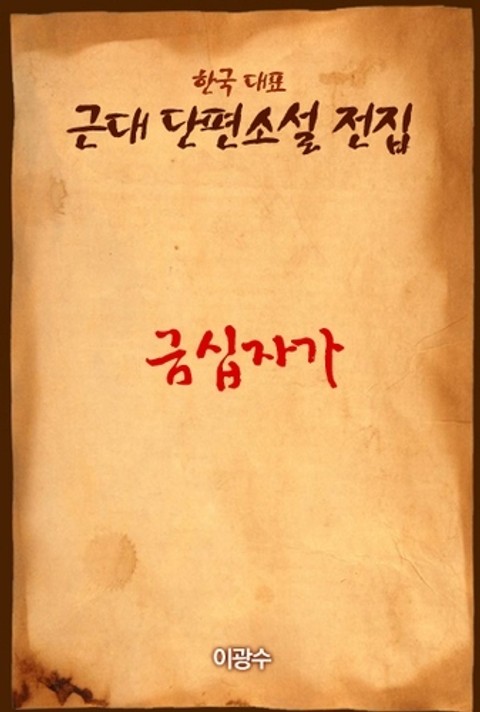 한국 대표
근대 단편소설 전집
금십자가
이광수